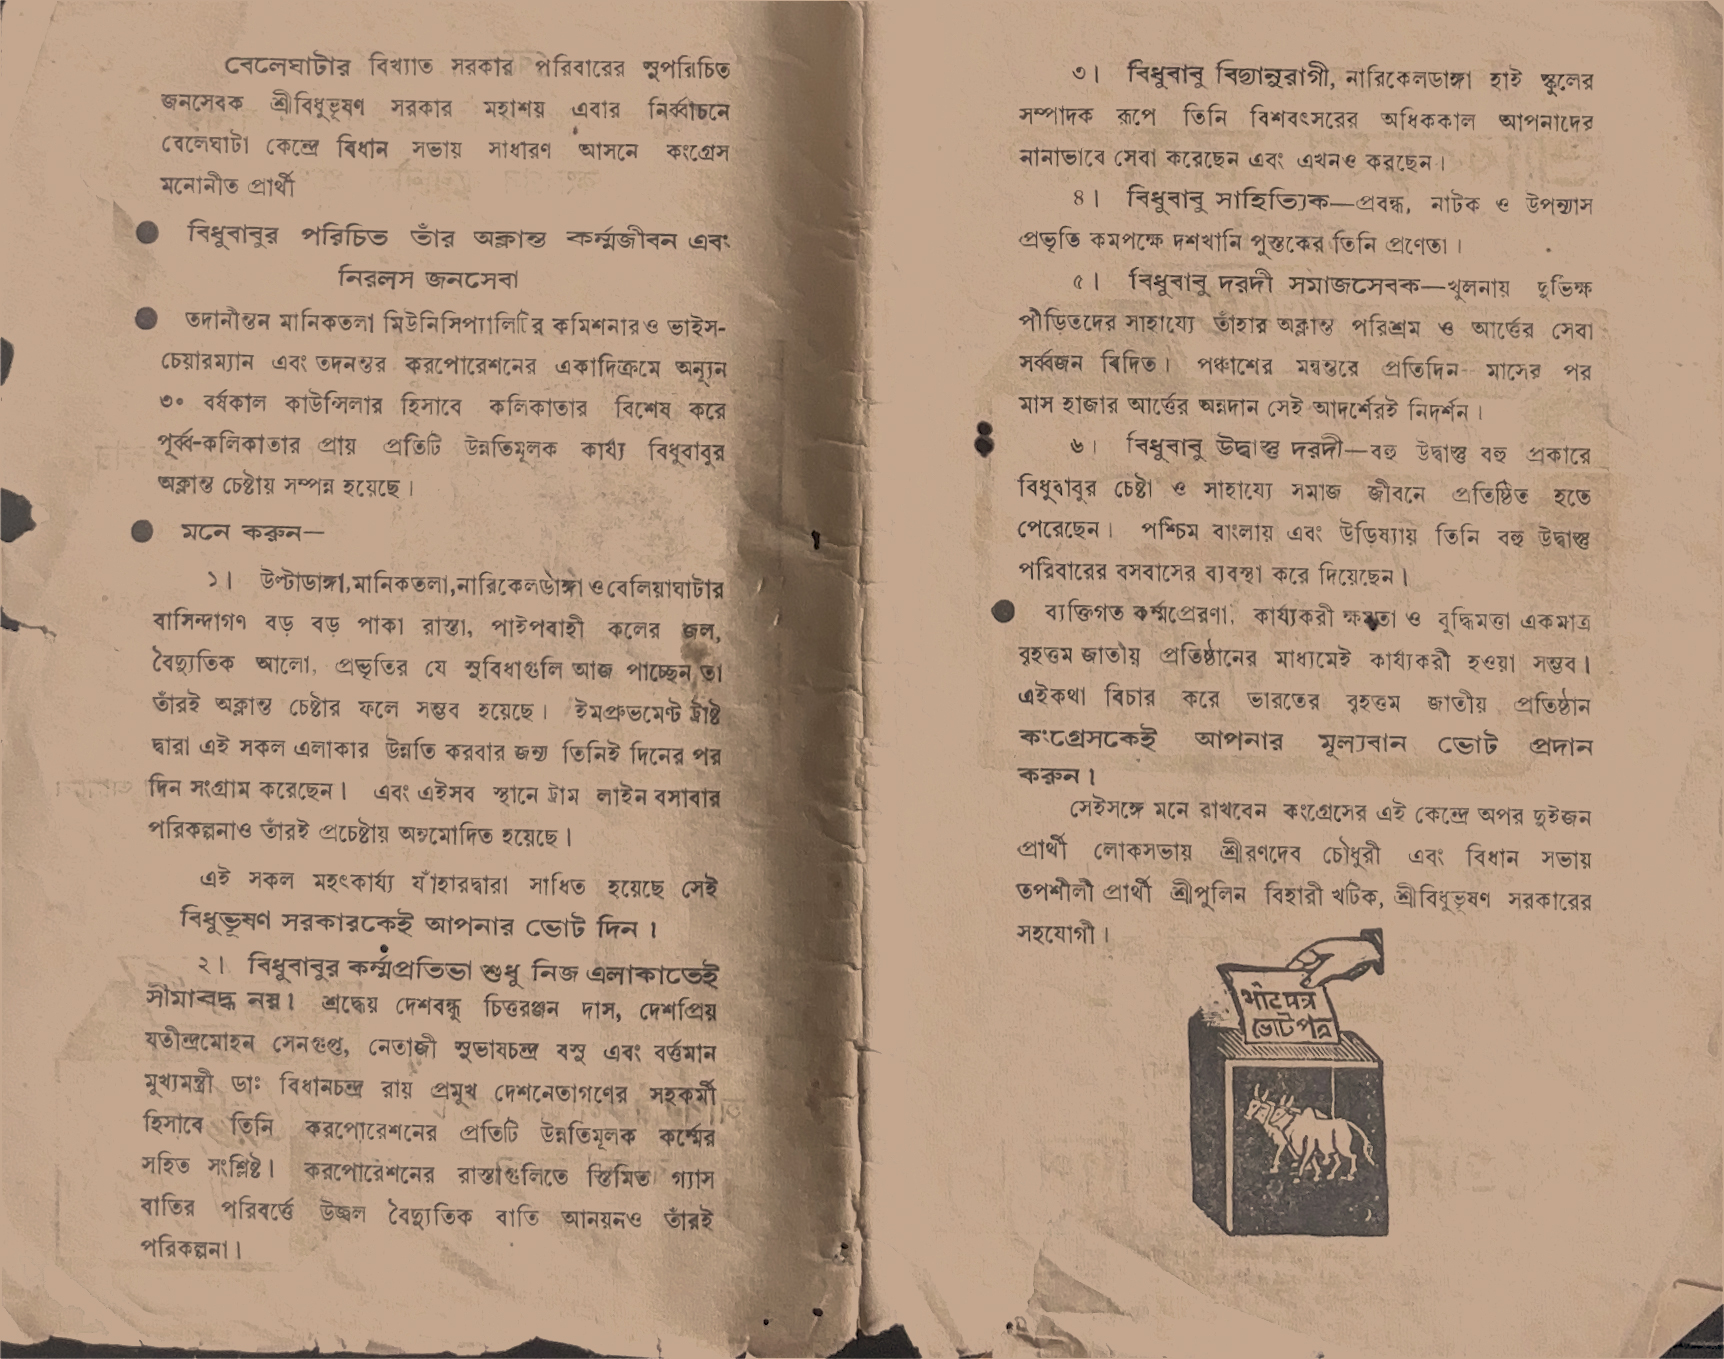 বেলেঘাটার বিখ্যাত সরকার পরিবারের সুপরিচিত
জনসেবক শ্রীবিধুভূষণ সরকার মহাশয় এবার নির্ব্বাচনে
বেলেঘাটা কেন্দ্রে বিধান সভায় সাধারণ আসনে কংগ্রেস
মনোনীত প্রার্থী
● বিধুবাবুর পরিচিত তাঁর অক্লান্ত কর্ম্মজীবন এবং
নিরলস জনসেবা
● তদানীন্তন মানিকতলা মিউনিসিপ্যালিটির কমিশনার ও ভাইস-
চেয়ারম্যান এবং তদনন্তর করপোরেশনের একাদিক্রমে অন্যূন
৩০ বর্ষকাল কাউন্সিলার হিসাবে কলিকাতার বিশেষ করে
পূর্ব্ব-কলিকাতার প্রায় প্রতিটি উন্নতিমূলক কার্য্য বিধুবাবুর
অক্লান্ত চেষ্টায় সম্পন্ন হয়েছে।
● মনে করুন—
১। উল্টাডাঙ্গা, মানিকতলা, নারিকেলডাঙ্গা ও বেলিয়াঘাটার
বাসিন্দাগণ বড় বড় পাকা রাস্তা, পাইপবাহী কলের জল,
বৈদ্যুতিক আলো, প্রভৃতির যে সুবিধাগুলি আজ পাচ্ছেন তা
তাঁরই অক্লান্ত চেষ্টার ফলে সম্ভব হয়েছে। ইমপ্রুভমেণ্ট ট্রাষ্ট
দ্বারা এই সকল এলাকার উন্নতি করবার জন্য তিনিই দিনের পর
দিন সংগ্রাম করেছেন। এবং এইসব স্থানে ট্রাম লাইন বসাবার
পরিকল্পনাও তাঁরই প্রচেষ্টায় অনুমোদিত হয়েছে।
এই সকল মহৎকার্য্য যাঁহারদ্বারা সাধিত হয়েছে সেই
বিধুভূষণ সরকারকেই আপনার ভোট দিন।
২। বিধুবাবুর কর্ম্মপ্রতিভা শুধু নিজ এলাকাতেই
সীমাবদ্ধ নয়। শ্রদ্ধেয় দেশবন্ধু চিত্তরঞ্জন দাস, দেশপ্রিয়
যতীন্দ্রমোহন সেনগুপ্ত, নেতাজী সুভাষচন্দ্র বসু এবং বর্ত্তমান
মুখ্যমন্ত্রী ডাঃ বিধানচন্দ্র রায় প্রমুখ দেশনেতাগণের সহকর্মী
হিসাবে তিনি করপোরেশনের প্রতিটি উন্নতিমূলক কর্ম্মের
সহিত সংশ্লিষ্ট। করপোরেশনের রাস্তাগুলিতে স্তিমিত গ্যাস
বাতির পরিবর্ত্তে উজ্জ্বল বৈদ্যুতিক বাতি আনয়নও তাঁরই
পরিকল্পনা।
৩। বিধুবাবু বিদ্যানুরাগী, নারিকেলডাঙ্গা হাই স্কুলের
সম্পাদক রূপে তিনি বিশবৎসরের অধিককাল আপনাদের
নানাভাবে সেবা করেছেন এবং এখনও করছেন।
৪। বিধুবাবু সাহিত্যিক—প্রবন্ধ, নাটক ও উপন্যাস
প্রভৃতি কমপক্ষে দশখানি পুস্তকের তিনি প্রণেতা।
৫। বিধুবাবু দরদী সমাজসেবক—খুলনায় দুভিক্ষ
পীড়িতদের সাহায্যে তাঁহার অক্লান্ত পরিশ্রম ও আর্ত্তের সেবা
সর্ব্বজন বিদিত। পঞ্চাশের মন্বন্তরে প্রতিদিন মাসের পর
মাস হাজার আর্ত্তের অন্নদান সেই আদর্শেরই নিদর্শন।
৬। বিধুবাবু উদ্বাস্তু দরদী—বহু উদ্বাস্তু বহু প্রকারে
বিধুবাবুর চেষ্টা ও সাহায্যে সমাজ জীবনে প্রতিষ্ঠিত হতে
পেরেছেন। পশ্চিম বাংলায় এবং উড়িষ্যায় তিনি বহু উদ্বাস্তু
পরিবারের বসবাসের ব্যবস্থা করে দিয়েছেন।
● ব্যক্তিগত কর্ম্মপ্রেরণা, কার্য্যকরী ক্ষমতা ও বুদ্ধিমত্তা একমাত্র
বৃহত্তম জাতীয় প্রতিষ্ঠানের মাধ্যমেই কার্য্যকরী হওয়া সম্ভব।
এইকথা বিচার করে ভারতের বৃহত্তম জাতীয় প্রতিষ্ঠান
কংগ্রেসকেই আপনার মূল্যবান ভোট প্রদান
করুন।
সেইসঙ্গে মনে রাখবেন কংগ্রেসের এই কেন্দ্রে অপর দুইজন
প্রার্থী লোকসভায় শ্রীরণদেব চৌধুরী এবং বিধান সভায়
তপশীলী প্রার্থী শ্রীপুলিন বিহারী খটিক, শ্রীবিধুভূষণ সরকারের
সহযোগী।
ভোটপত্র